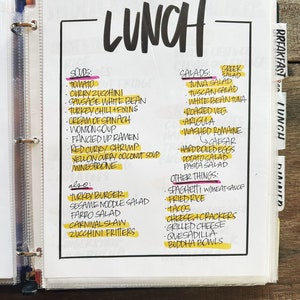 LUNCH
SOUPS:
· TOMATO
· CURRY ZUCCHINI
· SAUSAGE WHITE BEAN
· TURKEY CHILI BEANS
· CREAM OF SPINACH
· WONTON SOUP
· FANCIED UP RAMEN
· RED CURRY SHRIMP
· YELLOW CURRY COCONUT SOUP
· MINESTRONE
· TURKEY BURGER
· SESAME NOODLE SALAD
· FARRO SALAD
· CARNIVAL SLAW
· ZUCCHINI FRITTERS
SALADS:
· GREEK SALAD
· TUNA SALAD
· TUSCAN SALAD
· WHITE BEAN TUNA
· ROASTED VEG
· ARUGULA
· MASHED ROMAINE
CAESAR
· HARDBOILED EGG
· POTATO SALAD
· PASTA SALAD
OTHER THINGS:
· SPAGHETTI W/MEAT SAUCE
· FRIED RICE
· TACOS
· CHEESE + CRACKERS
· GRILLED CHEESE
· QUESADILLA
· BUDDHA BOWLS
BREAKFAST
LUNCH
DINNER